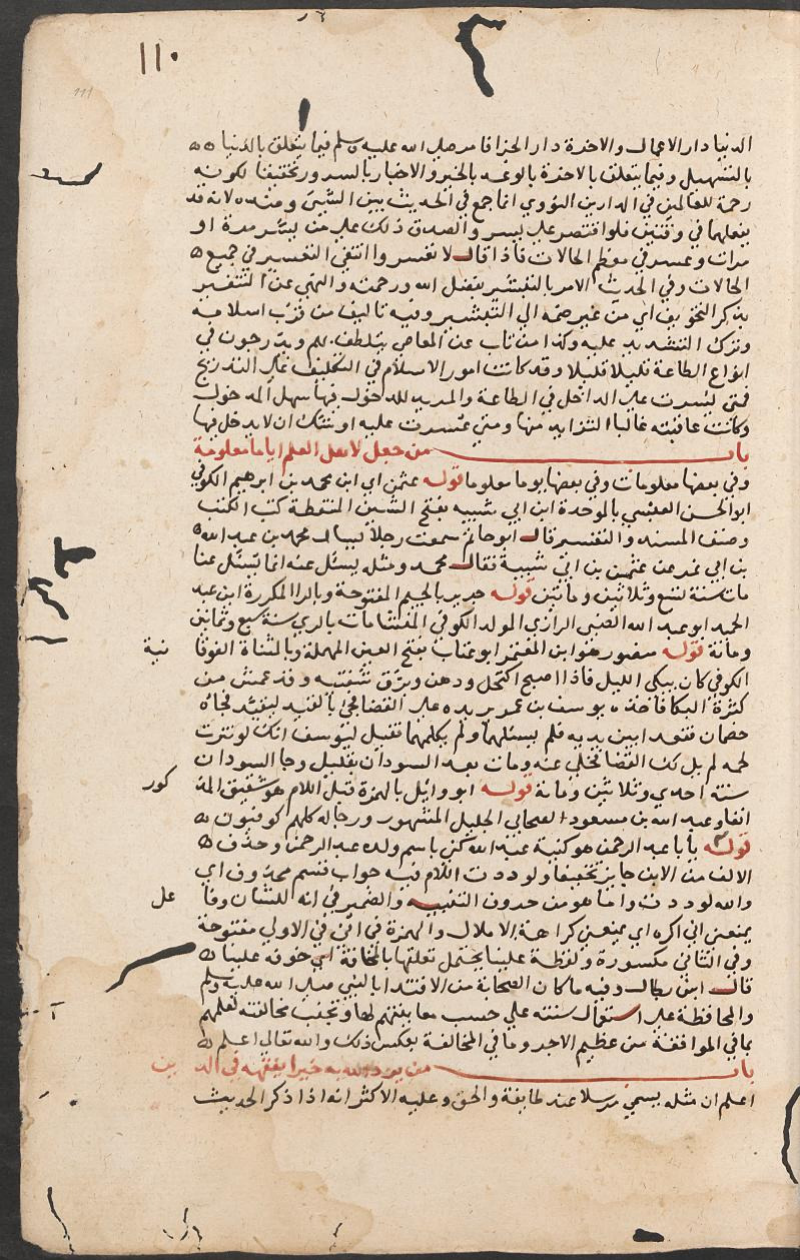 ١١٠
111
الدنيا دار الاعمال والاخرة دار الجزا فامر صلى الله عليه وسلم فيما يتعلق بالدنيا
بالتسهيل وفيما يتعلق بالاخرة بالوعد بالخير والاخبار بالسرور تحقيقا لكونه
رحمة للعالمين في الدارين النووي انما جمع في الحديث بين الشيئ وضده لانه قد
يفعلهما في وقتين فلو اقتصر على يسر والصدق ذلك على من يسر مرة او
مرات وعسر في معظم الحالات فاذا قال لا تعسروا انتفى التعسير في جميع
الحالات وفي الحديث الامر بالتبشير بفضل الله ورحمته والنهي عن التنفير
بذكر التخويف اي من غير ضمه الي التبشير وفيه تاليف من قرب اسلامه
وترك التشديد عليه وكذا من تاب عن المعاصي يتلطف بهم ويدرجون في
انواع الطاعة قليلا قليلا وقد كانت امور الاسلام في التكليف على التدريج
فمتى يسرت على الداخل في الطاعة والمريد للدخول فيها سهل الدخول
وكانت عاقبته غالبا التزايد منها ومتى عسرت عليه اوشك ان لا يدخل فيها
باب من جعل لاهل العلم اياما معلومة
وفي بعضها معلومات وفي بعضها يوما معلوما قوله عثمن اي ابن محمد بن ابرهيم الكوفي
ابو الحسن العبسي بالموحدة ابن ابي شيبه بفتح الشين المنقطة كتب الكتب
وصنف المسند والتفسير قال ابو حاتم سمعت رجلا يسال محمد بن عبد الله
بن ابي نمير عن عثمن بن ابي شيبة فقال محمد ومثله يسئل عنه انما يسئل عنا
مات سنة تسع وثلاثين ومايتين قوله جرير بالجيم المفتوحة وبالرا المكررة ابن عبد
الحميد ابو عبد الله الضبي الرازي المولد الكوفي المنشا مات بالري سنة سبع وثمانين
وماية قوله منصور هو ابن المعتمر ابو عتاب بفتح العين المهملة وبالمثناة الفوقا نية
الكوفي كان يبكي الليل فاذا اصبح اكتحل وادهن وبرق شفتيه وقد عمش من
كثرة البكا فاخذه يوسف بن عمر يريده على القضا فجئ بالقيد ليقيد فجاه
خصمان فقعدا بين يديه فلم يسئلهما ولم يكلمهما فقيل ليوسف انك لو نثرت
لحمه لم يل لك القضا فخلى عنه ومات بعد السودان بقليل وجا السودان
سنة احدي وثلاثين وماية قوله ابو وايل بالهمزة قبل اللام هو شقيق المذ كور
انفا وعبد الله بن مسعود الصحابي الجليل المشهور ورجاله كلهم كوفيون
قوله يا با عبد الرحمن هو كنية عبد الله كني باسم ولده عبد الرحمن وحذف
الالف من الابن جايز تخفيفا ولوددت اللام فيه جواب قسم محذوف اي
والله لوددت واما هو من حروف التنبيه والضمير في انه للشان وفا عل
يمنعني اني اكره اي يمنعني كراهة الاملال والهمزة في اني في الاولي مفتوحة
وفي الثاني مكسورة ولفظة علينا يحتمل تعلقها بالمخافة اي خوفه علينا
قال ابن بطال وفيه ما كان الصحابة من الاقتدا بالنبي صلى الله عليه وسلم
والمحافظة على استعمال سنته علي حسب معاينتهم لها وتجنب مخالفته لعلمهم
بما في الموافقة من عظيم الاجر وما في المخالفة بعكس ذلك والله تعالى اعلم
باب من يرد الله به خيرا يفقهه في الد ين
اعلم ان مثله يسمي مرسلا عند طايفة والحق وعليه الاكثر انه اذا ذكر الحديث